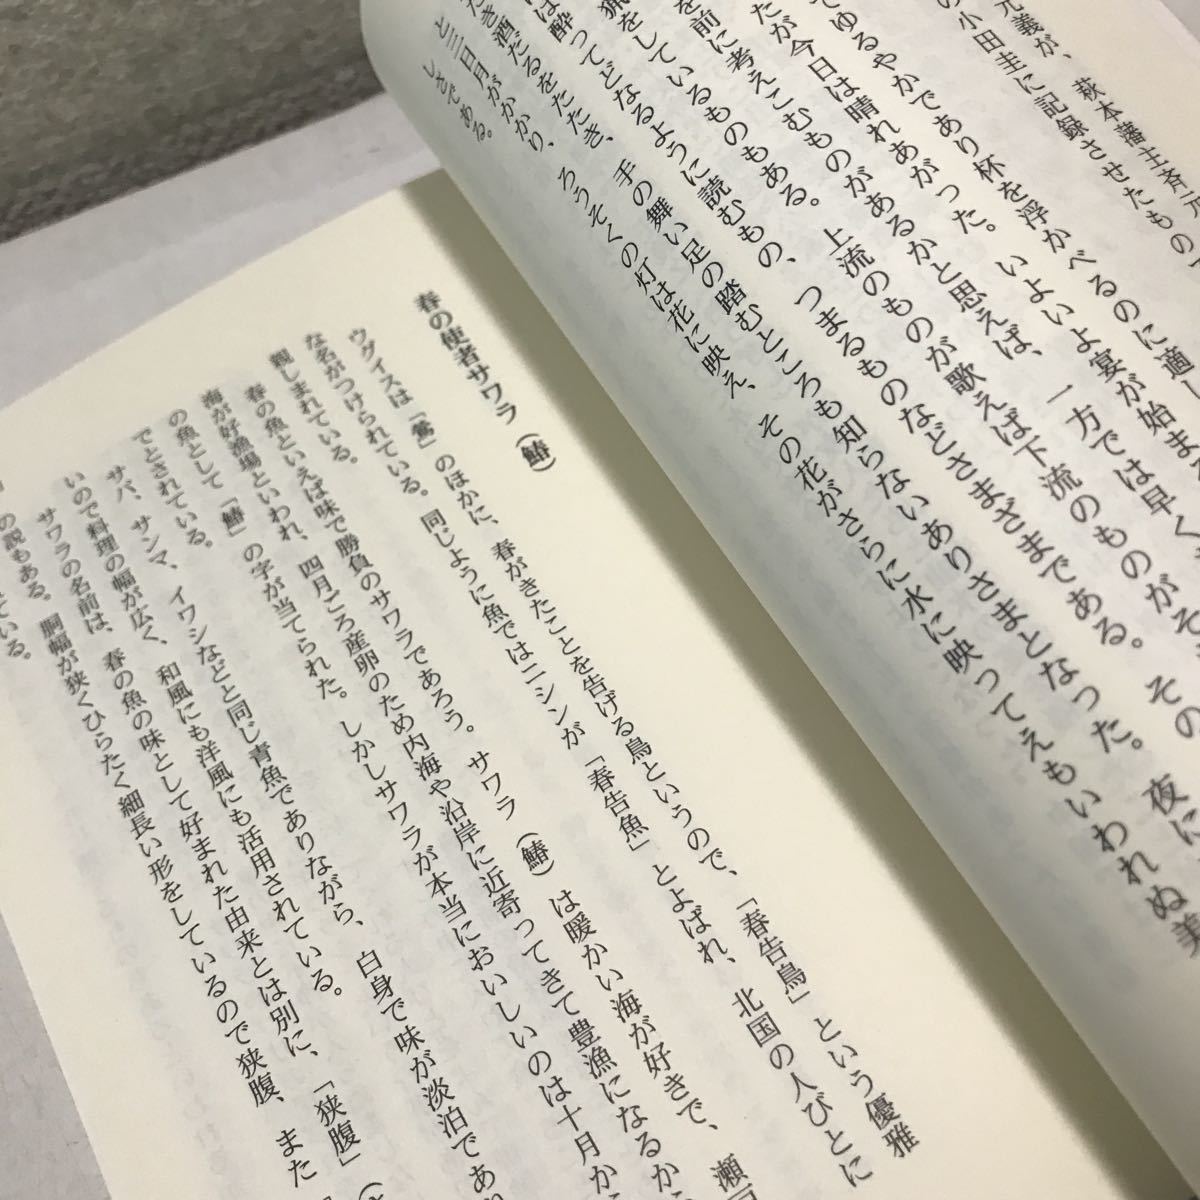 元義が、萩本藩主斉元
の小田圭に記録させたもので
でゆるやかであり杯を浮かべるのに適し
たが今日は晴れあがった。いよいよ宴が始まる
を前に考えこむものがあるかと思えば、一方では早く
猟をしているものもある。上流のものが歌えば下流のものがそ
は酔ってどなるように読むもの、つまるものなどさまざまである。その
たき酒だるをたたき、手の舞い足の踏むところも知らないありさまとなった。夜に
と三日月がかかり、ろうそくの灯は花に映え、その花がさらに水に映ってえもいわれぬ美
しさである。
春の使者サワラ（鰆）
ウグイスは「鶯」のほかに、春がきたことを告げる鳥というので、「春告鳥」という優雅
な名がつけられている。同じように魚ではニシンが「春告魚」とよばれ、北国の人びとに
親しまれている。
春の魚といえば味で勝負のサワラであろう。サワラ（鰆）は暖かい海が好きで、瀬戸
海が好漁場といわれ、四月ごろ産卵のため内海や沿岸に近寄ってきて豊漁になるから
の魚として「鰆」の字が当てられた。しかしサワラが本当においしいのは十月から
でとされている。
サバ、サンマ、イワシなどと同じ青魚でありながら、白身で味が淡泊であ
いので料理の幅が広く、和風にも洋風にも活用されている。
サワラの名前は、春の魚の味として好まれた由来とは別に、「狭腹」（
の説もある。胴幅が狭くひらたく細長い形をしているので狭腹、また
ている。